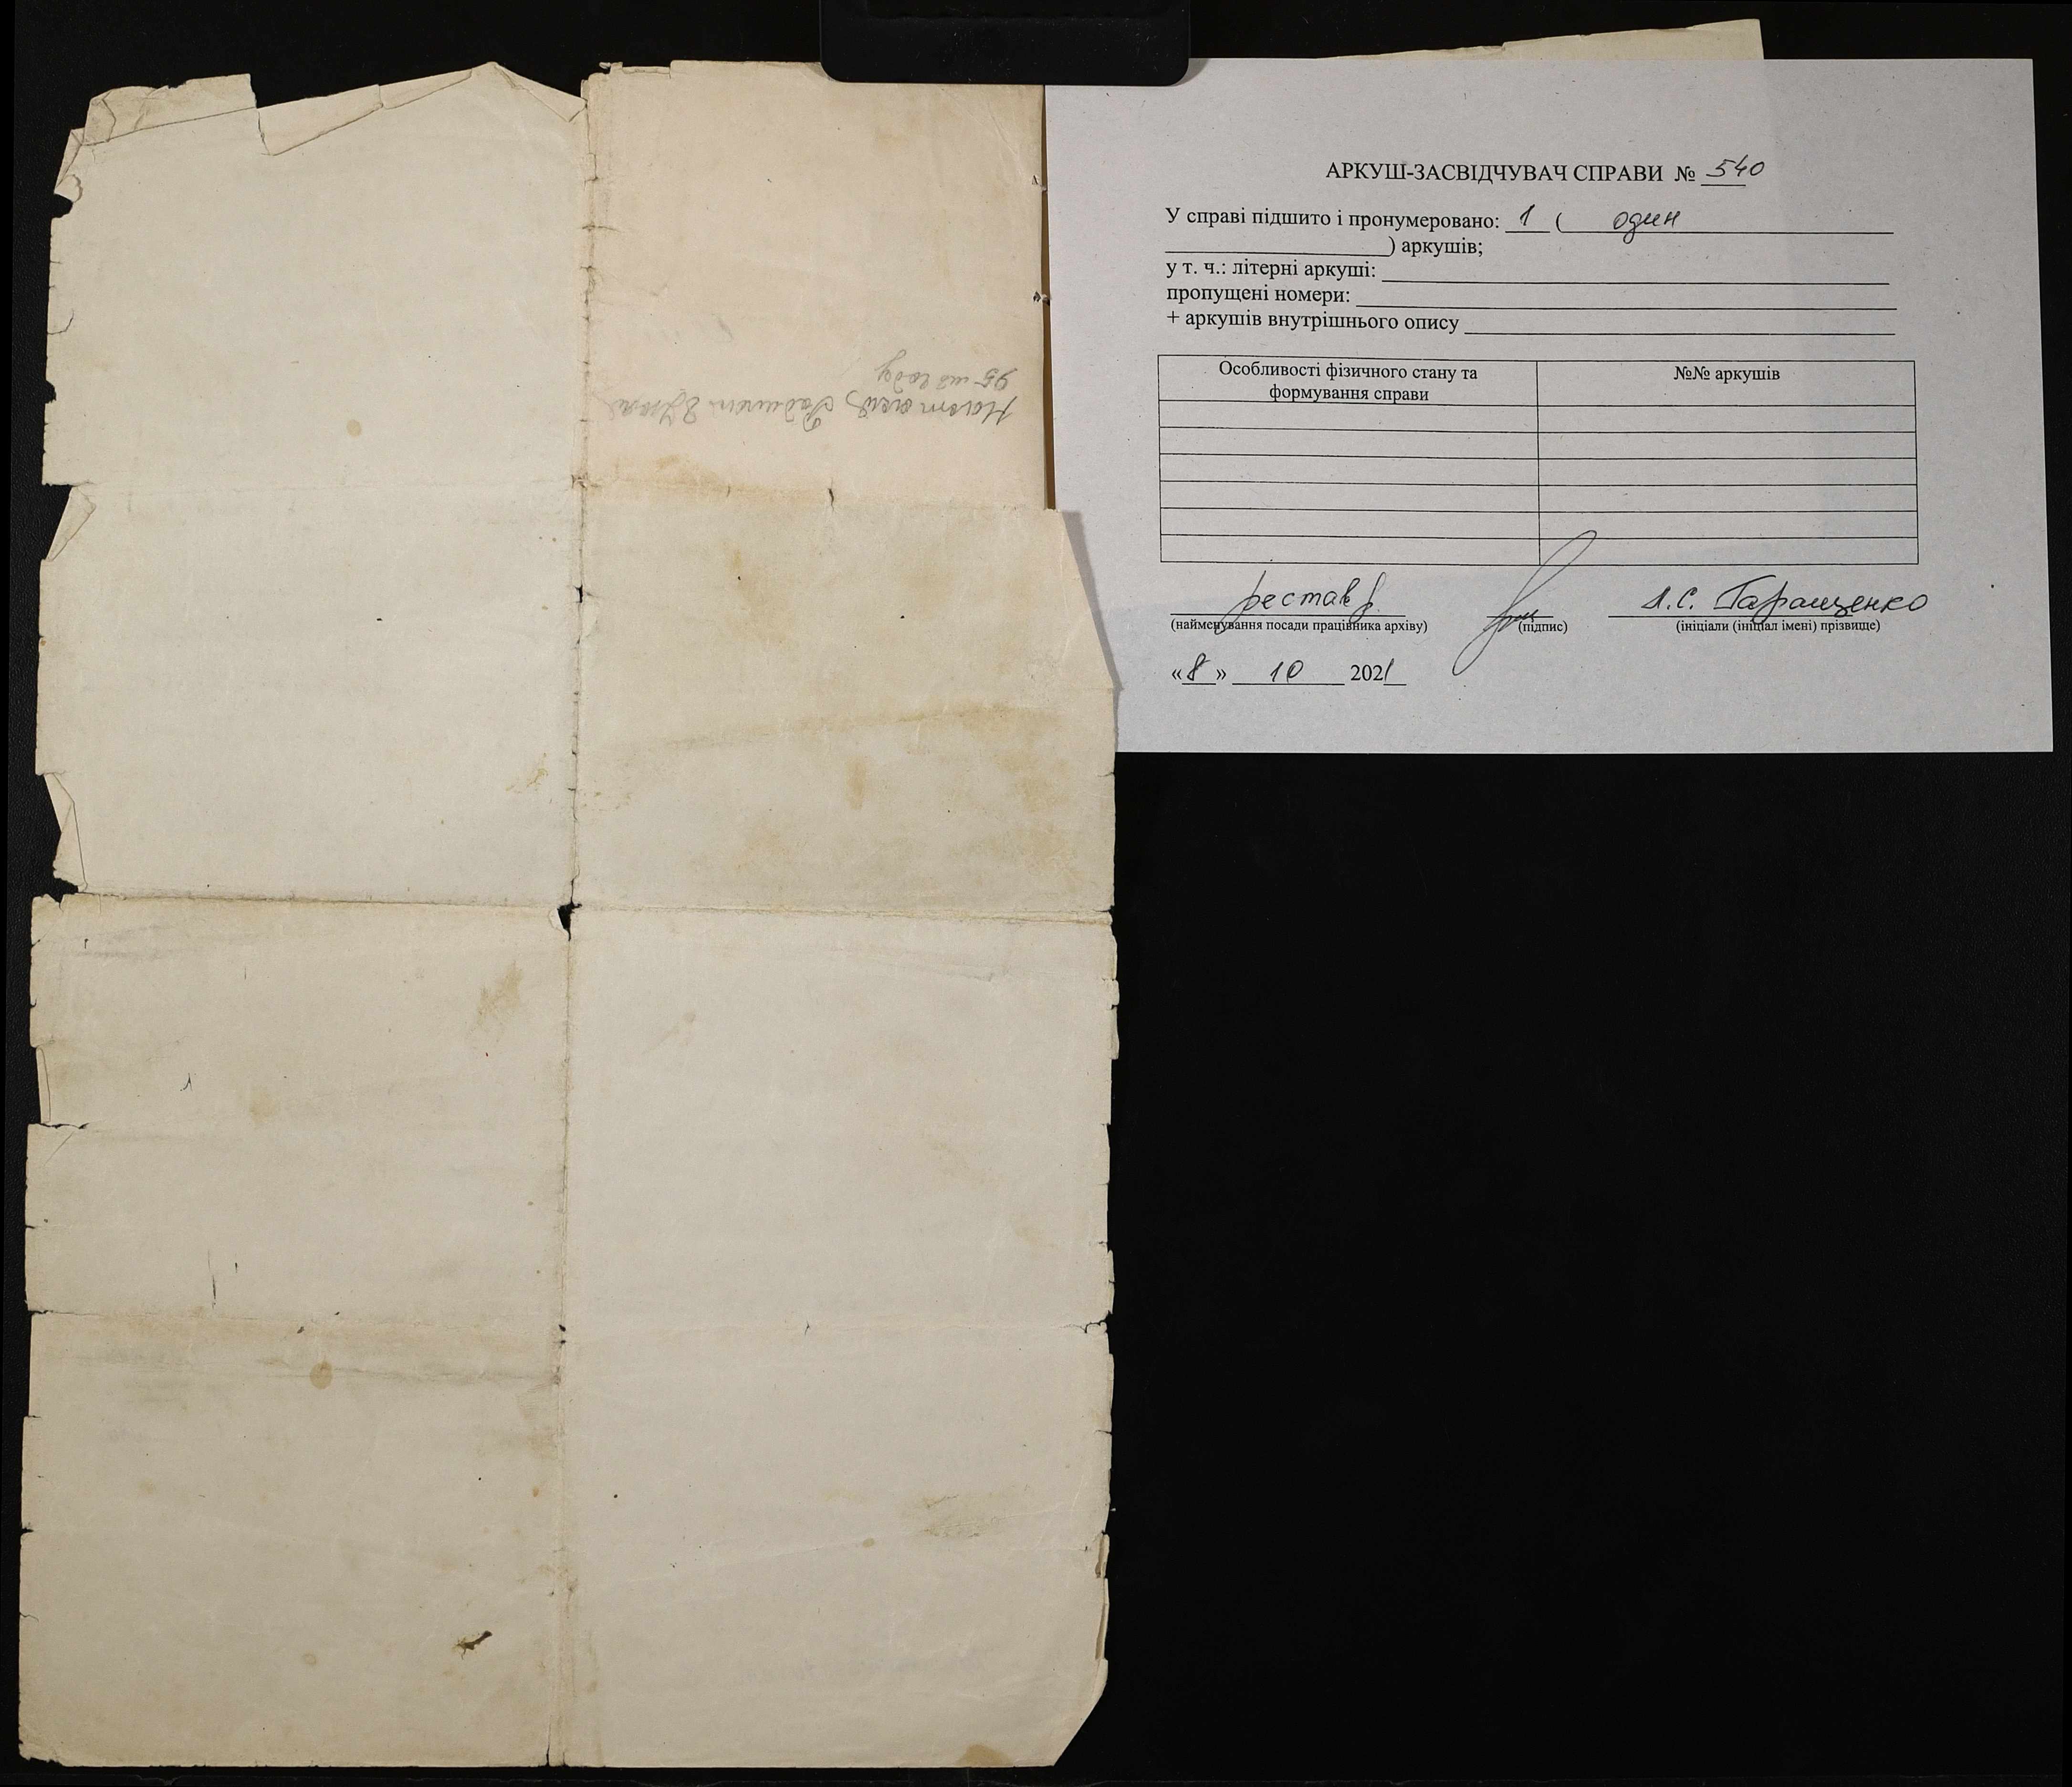 АРКУШ-ЗАСВІДЧУВАЧ СПРАВИ № 540
У справі підшито і пронумеровано: 1 ( один
) аркушів;
у т. ч.: літерні аркуші:
пропущені номери:
+ аркушів внутрішнього опису
Особливості фізичного стану та формування справи
№№ аркушів
реставр
(найменування посади працівника архіву)
(підпис)
Л.С. Гаращенко
(ініціали (ініціал імені) прізвище)
«8» 10 2021
95 году